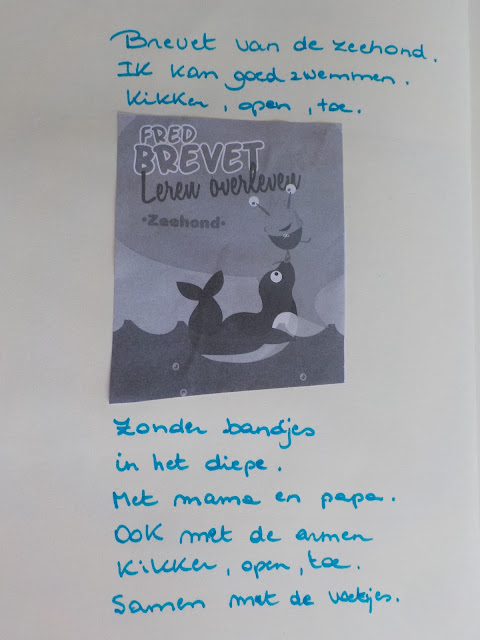 Brevet van de zeehond.
Ik kan goed zwemmen.
Kikker, open, toe.
FRED
BREVET
Leren overleven
•Zeehond•
Zonder bandjes
in het diepe.
Met mama en papa.
Ook met de armen
Kikker, open, toe.
Samen met de voetjes.